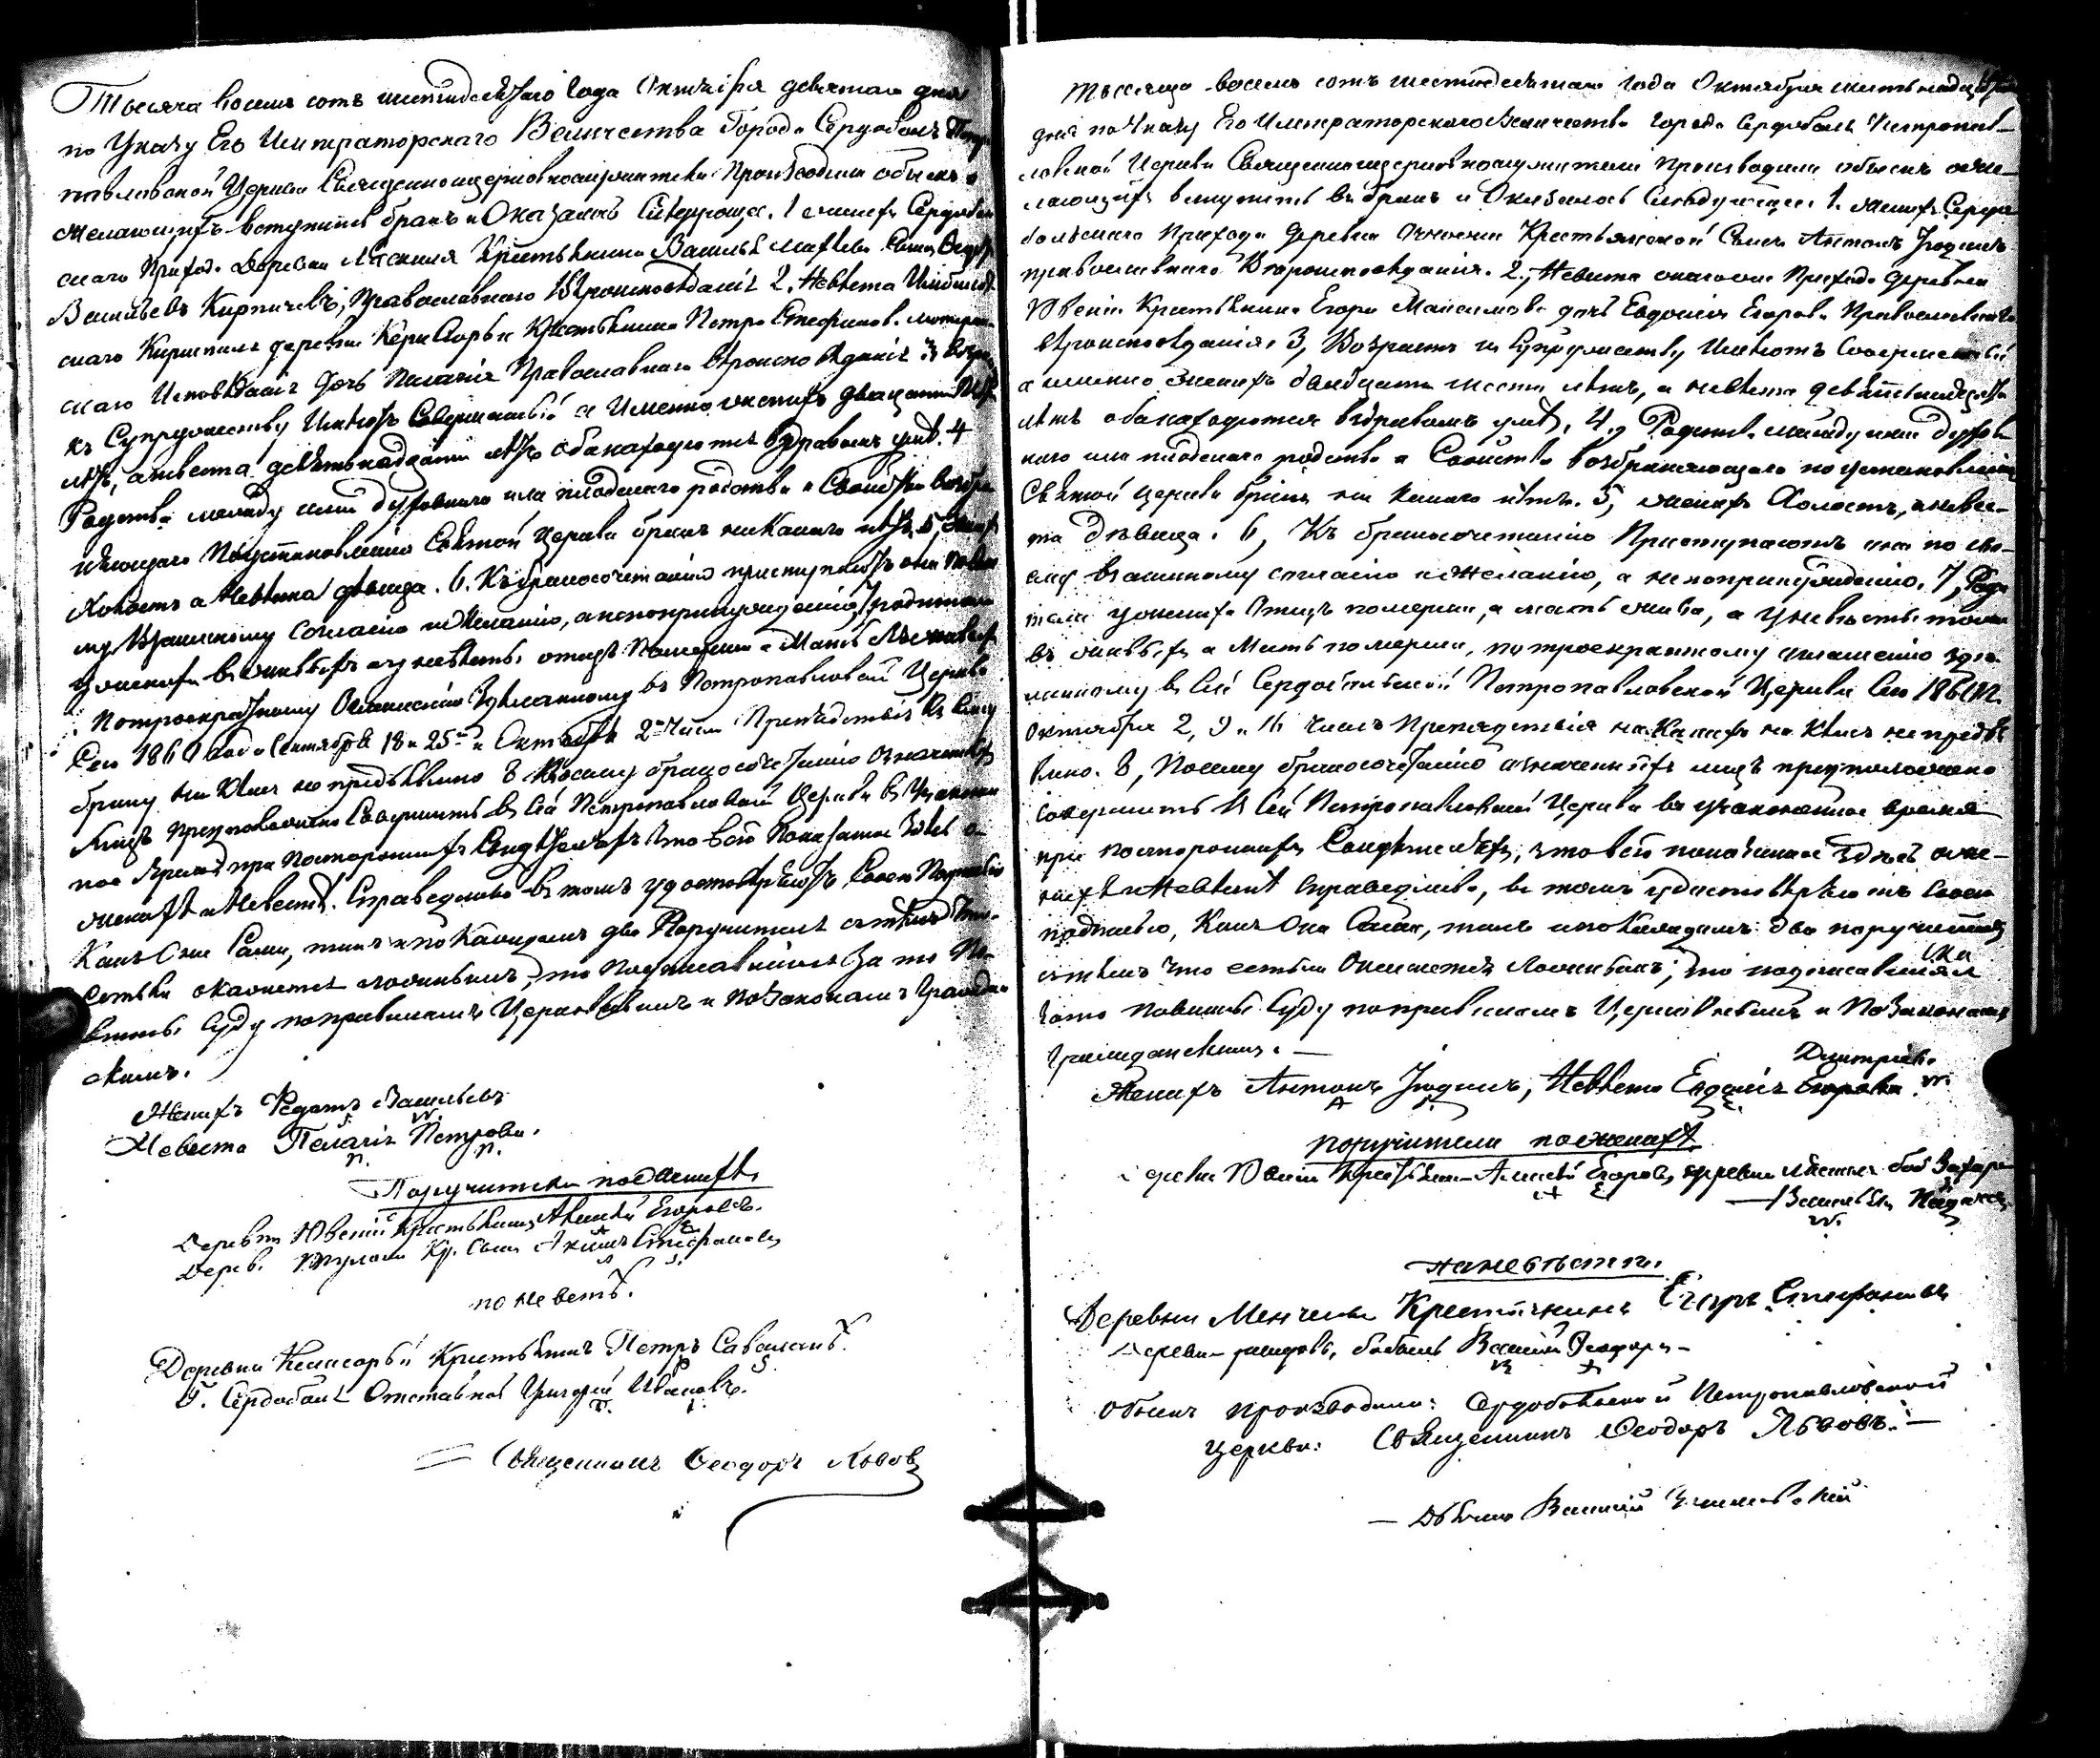 Тысяча восемь сотъ шестидесятаго года Октября девятаго дня
по Указу Его Императорскаго Величества города Сердоболь Петро
павловской Церкви Священноцерковнослужители производили обыскъ о
желающихъ вступить бракъ и Оказалось Слѣдующее. 1 женихъ Сердоболь
скаго Прихода Деревни Ляскеля Крестьянина Василья Сынъ
Васильевъ Кирпичевъ, Православнаго Вѣроисповѣданія 2. Невѣста
скаго Кирхшпиля деревни Крестьянина Петра Стефанова лютеран
скаго Исповѣданія дочь Пелагія Православнаго вѣроисповѣданія 3 Возрастъ
къ Супружеству Имѣютъ Совершенный а Именно женихъ двадцати
лѣтъ, а невѣста девятьнадцати лѣтъ оба находются въ здравомъ умѣ. 4
Родства между ими духовнаго или плотскаго родства и Свойства возбра
няющаго По установленію Святой Церкви бракъ никакого нѣтъ, 5, женихъ
Холостъ а Невѣста дѣвица. 6. Къ бракосочетанію приступаютъ они по сво
му Взаимному Согласію и Желанію, а не по принужденію, 7 родители
у жениха въ живыхъ а у невѣсты отецъ а Мать въ живыхъ
По троекратному Оглашенію Зделанному въ Петропавловской Церкви
Сего 1860 года Сентября 18 и 25 и Октября 2 чисел Препятствія къ сему
браку ни кѣмъ не предъявлено 8 Посему бракосочетанію означенныхъ
лицъ предположено Совершить въ сей Петропавловской Церкви въ Узаконен
ное время при постороннихъ Свидѣтеляхъ Что все показанное здѣсь о
женихѣ и Невѣстѣ Справедливо въ томъ удостовѣряютъ Своею Подписью
Какъ Они Сами, такъ и по Каждомъ два Поручителя съ тѣмъ Что
естьли окажется ложнымъ, то Подписавшіеся За то По
винны Суду по правиламъ Церковнымъ и по Законамъ Граждан
скимъ.
Женихъ Федотъ Васильевъ
Невѣста Пелагія Петрова.
Поручители по Женихѣ
Деревни Крестьянинъ Алексѣй Егоровъ.
Дерев. Кр. Сынъ Акимъ Стефановъ
по Невѣстѣ.
Деревни Крестьянинъ Петръ
Г. Сердоболя Отставной Григорій Ивановъ.
Священникъ Ѳеодоръ Львовъ
Тысяща восемь сотъ шестидесятаго года Октября шестьнадцатаго
дня по Указу Его Императорскаго Величества города Сердоболь Петропав
ловской Церкви Священноцерковнослужители производили обыскъ о же
лающихъ вступить въ бракъ и Оказалось Слѣдующее 1. женихъ Сердо
больскаго Прихода Деревни Крестьянской Сынъ Антонъ
православнаго Вѣроисповѣданія. 2, Невѣста онагоже Прихода деревни
Крестьянина Егора Максимова дочь Евдокія Егорова Православнаго
вѣроисповѣданія, 3, Возрастъ къ Супружеству Имѣютъ Совершенный
а именно женихъ двадцати шести лѣтъ, а невѣста девятьнадцати
лѣтъ оба находются въ здравомъ умѣ, 4, Родства между ими духов
наго или плотскаго родства и Свойства возбраняющаго по установленію
Святой Церкви бракъ ни какого нѣтъ. 5, женихъ Холостъ, а невѣс
та Дѣвица. 6, Къ бракосочетанію Приступаютъ они по сво
ему взаимному согласію и желанію, а не по принужденію. 7, Роди
тели у жениха Отецъ померши, а мать жива, а у невѣсты
въ живыхъ а Мать померши, по троекратному оглашенію здѣ
ланному въ Сей Сердобольской Петропавловской Церкви Сего 1860 г.
октября 2, 9 и 16 числъ Препятствія ни кѣмъ не предъя
влено. 8, Посему бракосочетанію означенныхъ лицъ предположено
совершить въ Сей Петропавловской Церкви въ узаконенное время
при постороннихъ Свидѣтеляхъ, что все показанное здѣсь о же
нихѣ и Невѣстѣ Справедливо, въ томъ удостовѣряютъ Своею
подписью, Какъ Они Сами, такъ и по Каждомъ два поручителя
съ тѣмъ что естьли Окажется Ложнымъ, то подписавшіяся
за то повинны Суду по правиламъ Церковнымъ и По Законамъ
Гражданскимъ.
Дмитріева
Женихъ Антонъ Невѣста Евдокія Егорова
Поручители по женихѣ
Крестьянинъ Алексѣй Егоровъ, деревни
Васильевъ
по невѣсти.
Деревни Крестьянинъ Егоръ Стефановъ
Деревни бобыль Василій Ѳеодоръ
Обыскъ производили: Сердобольской Петропавловской
Церкви: Священникъ Ѳеодоръ Львовъ.
Дьячокъ Василій